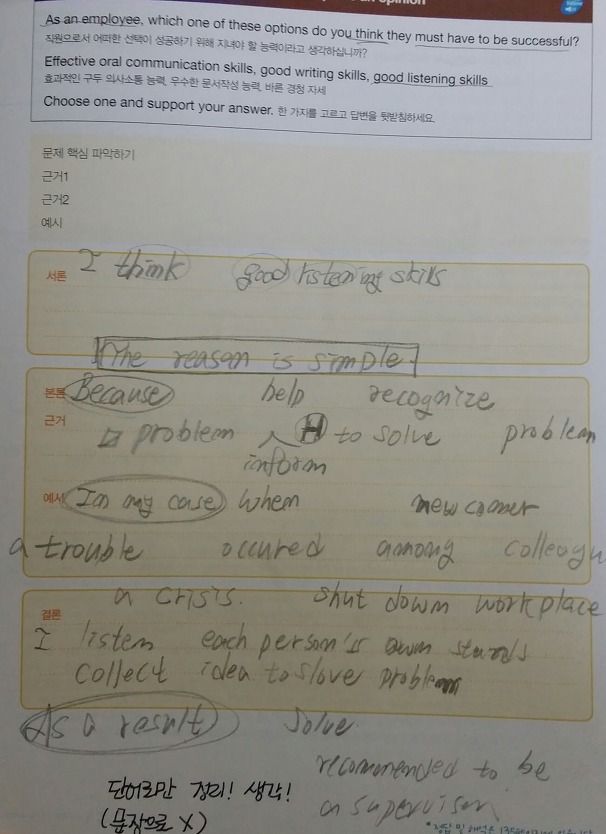 opinion
As an employee, which one of these options do you think they must have to be successful?
직원으로서 어떠한 선택이 성공하기 위해 지녀야 할 능력이라고 생각하십니까?
Effective oral communication skills, good writing skills, good listening skills
효과적인 구두 의사소통 능력, 우수한 문서작성 능력, 바른 경청 자세
Choose one and support your answer. 한 가지를 고르고 답변을 뒷받침하세요.
문제 핵심 파악하기
근거1
근거2
예시
서론 I think good listening skills
The reason is simple.
본론 Because help recognize
근거 problem H to solve problem
inform
예시 In my case when new comer
a trouble occured among colleagu
a crisis. shut down workplace
결론
I listen each person's own stands
collect idea to slove problem
As a result solve
recommended to be
단어로만 정리! 생각! a supervisor
(문장으로 X)